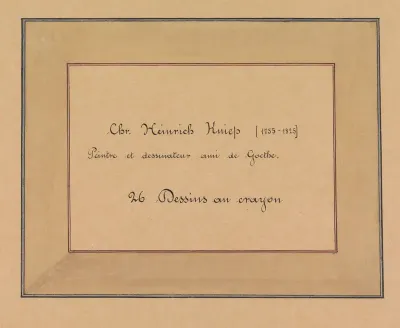 Chr. Heinrich Kniep [1755-1825]
Peintre et dessinateur ami de Goethe.
26 Dessins au crayon